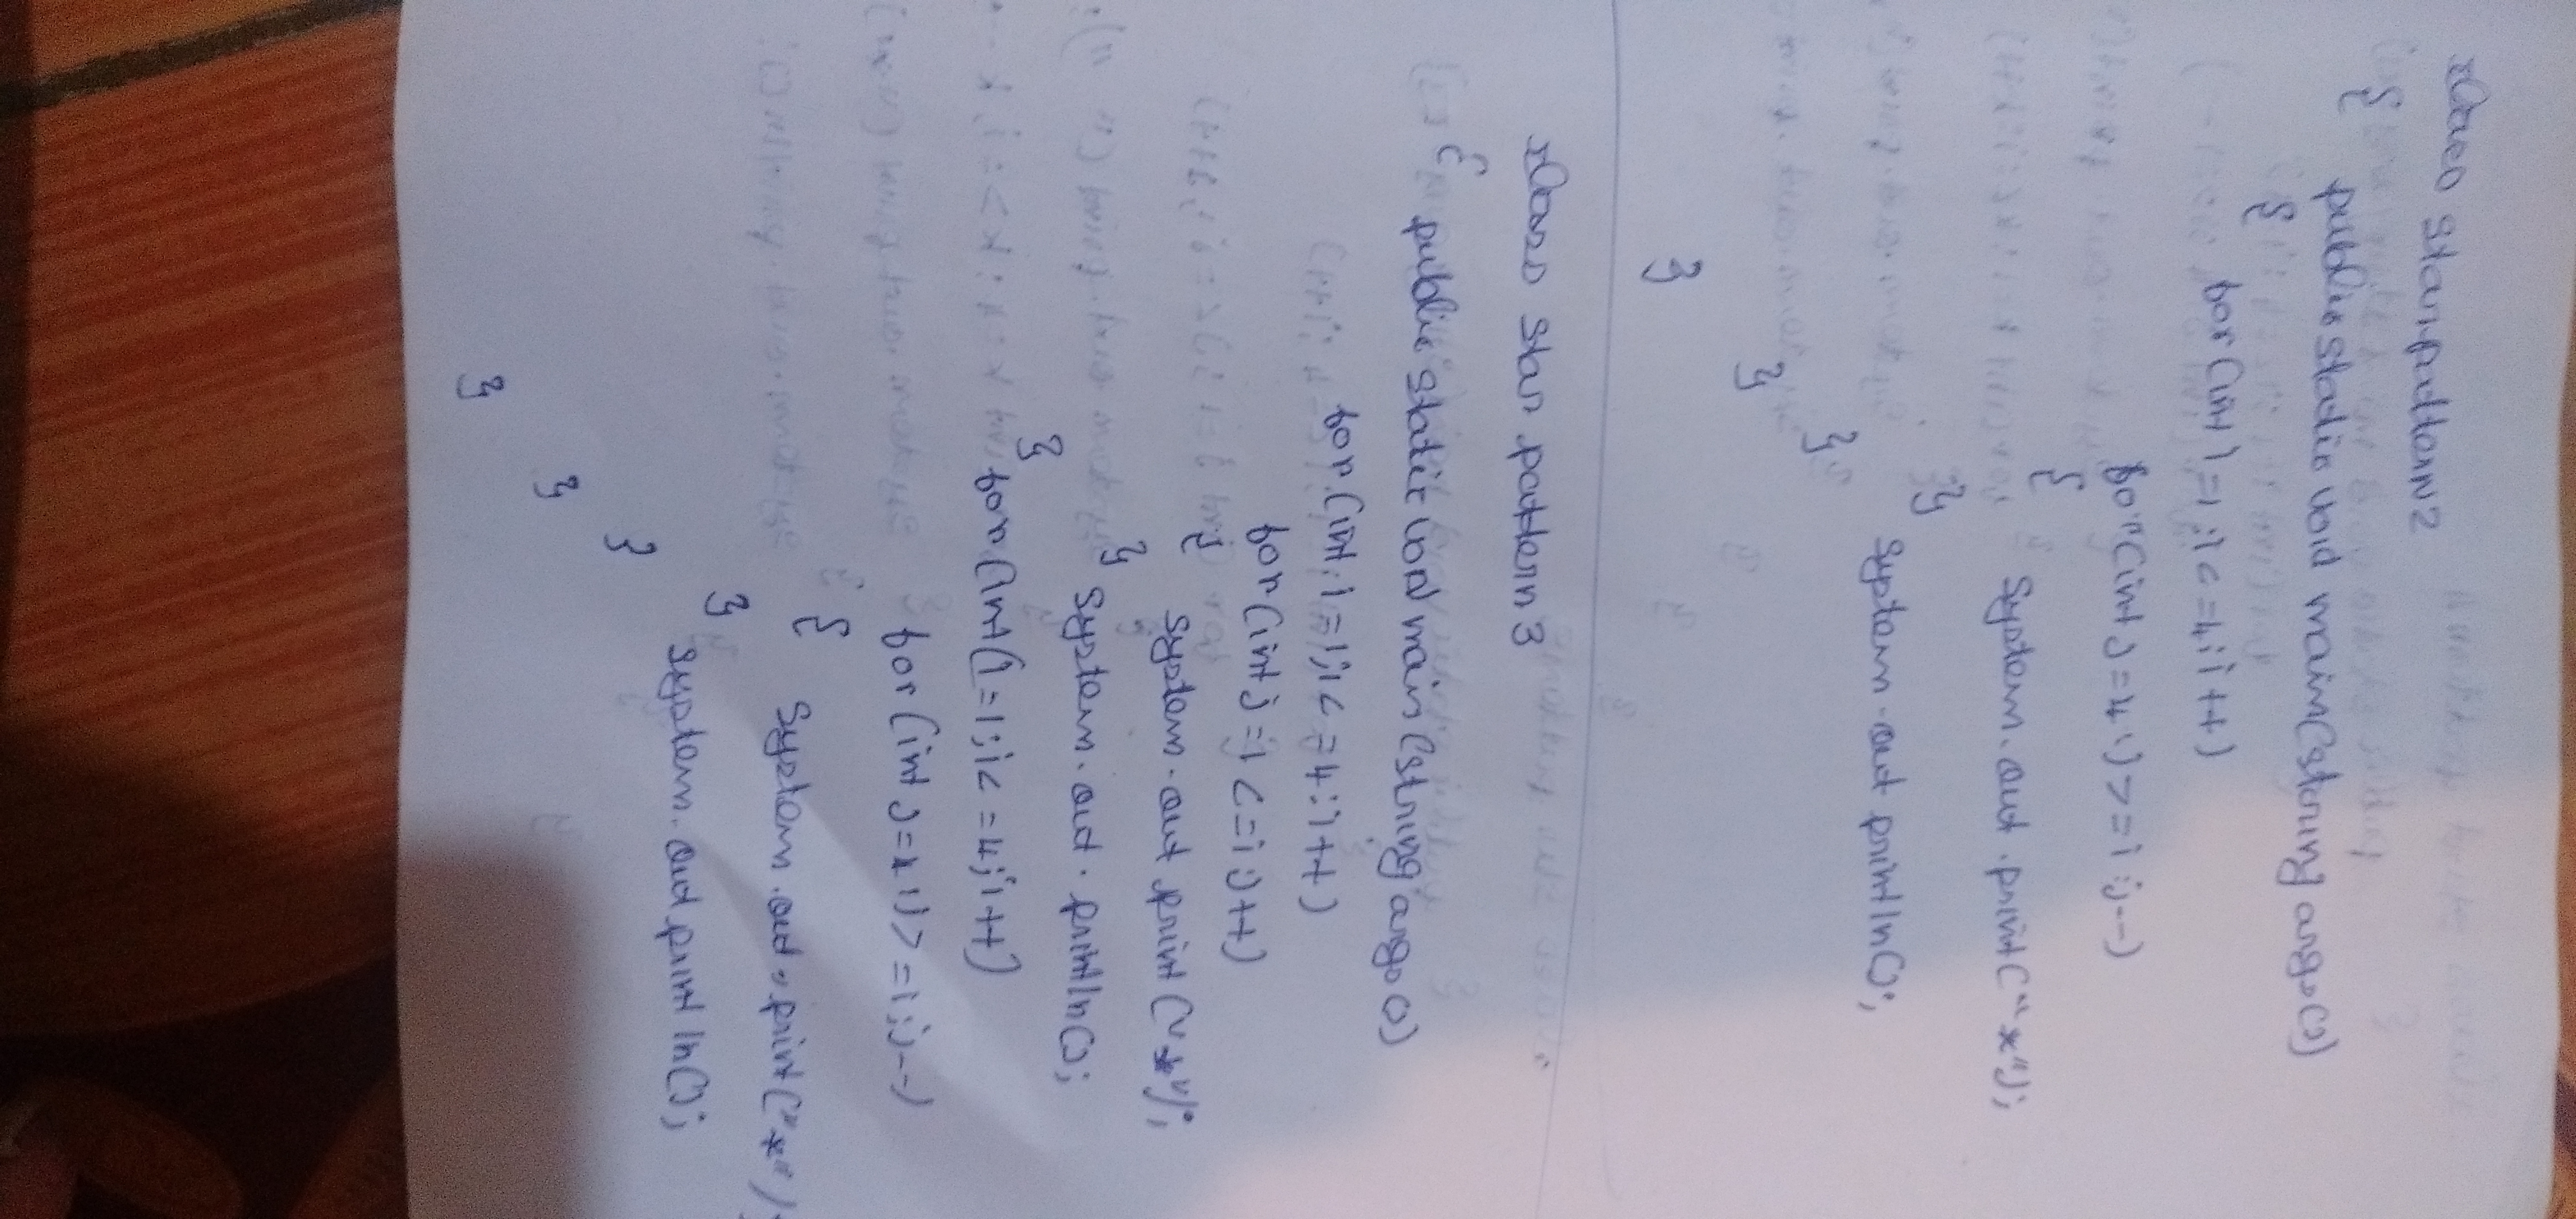 class Starpattern2
{
public static void main(string args())
{
for(int i=1;i<=4;i++)
for(int j=4;j>=i;j--)
{
System.out.print("*");
}
System.out println();
}
}
}
class Star pattern 3
{
public static void main(string args())
for(int i=1;i<=4;i++)
for(int j=1<=i;j++)
{
System.out print("*");
}
System.out.println();
}
for(int(i=1;i<=4;i++)
for(int j=4;j>=i;j--)
{
System.out.print("*")
}
System.out println();
}
}
}